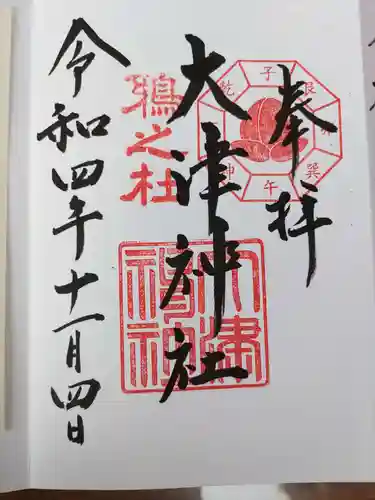 奉拝
大津神社
鴉之杜
令和四年十一月四日
子
艮
卯
巽
午
坤
乾
大津神社